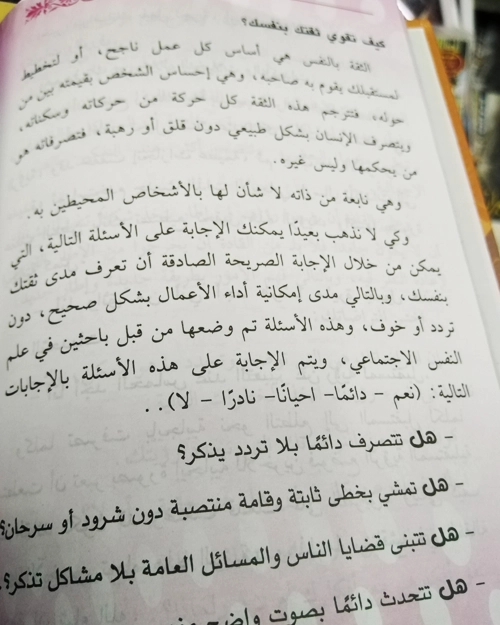 كيف تقوي ثقتك بنفسك؟
الثقة بالنفس هي أساس كل عمل ناجح، أو لتخطيط
لمستقبلك يقوم به صاحبه، وهي إحساس الشخص بقيمته بين من
حوله، فتترجم هذه الثقة كل حركة من حركاته وسكناته،
ويتصرف الإنسان بشكل طبيعي دون قلق أو رهبة، فتصرفاته هو
من يحكمها وليس غيره.
وهي نابعة من ذاته لا شأن لها بالأشخاص المحيطين به.
وكي لا نذهب بعيدًا يمكنك الإجابة على الأسئلة التالية، التي
يمكن من خلال الإجابة الصريحة الصادقة أن تعرف مدى ثقتك
بنفسك، وبالتالي مدى إمكانية أداء الأعمال بشكل صحيح، دون
تردد أو خوف، وهذه الأسئلة تم وضعها من قبل باحثين في علم
النفس الاجتماعي، ويتم الإجابة على هذه الأسئلة بالإجابات
التالية: (نعم – دائمًا- احيانًا- نادرًا - لا)..
- هل تتصرف دائمًا بلا تردد يذكر؟
- هل تمشي بخطى ثابتة وقامة منتصبة دون شرود أو سرحان؟
- هل تتبنى قضايا الناس والمسائل العامة بلا مشاكل تذكر؟
- هل تتحدث دائمًا بصوت واضح